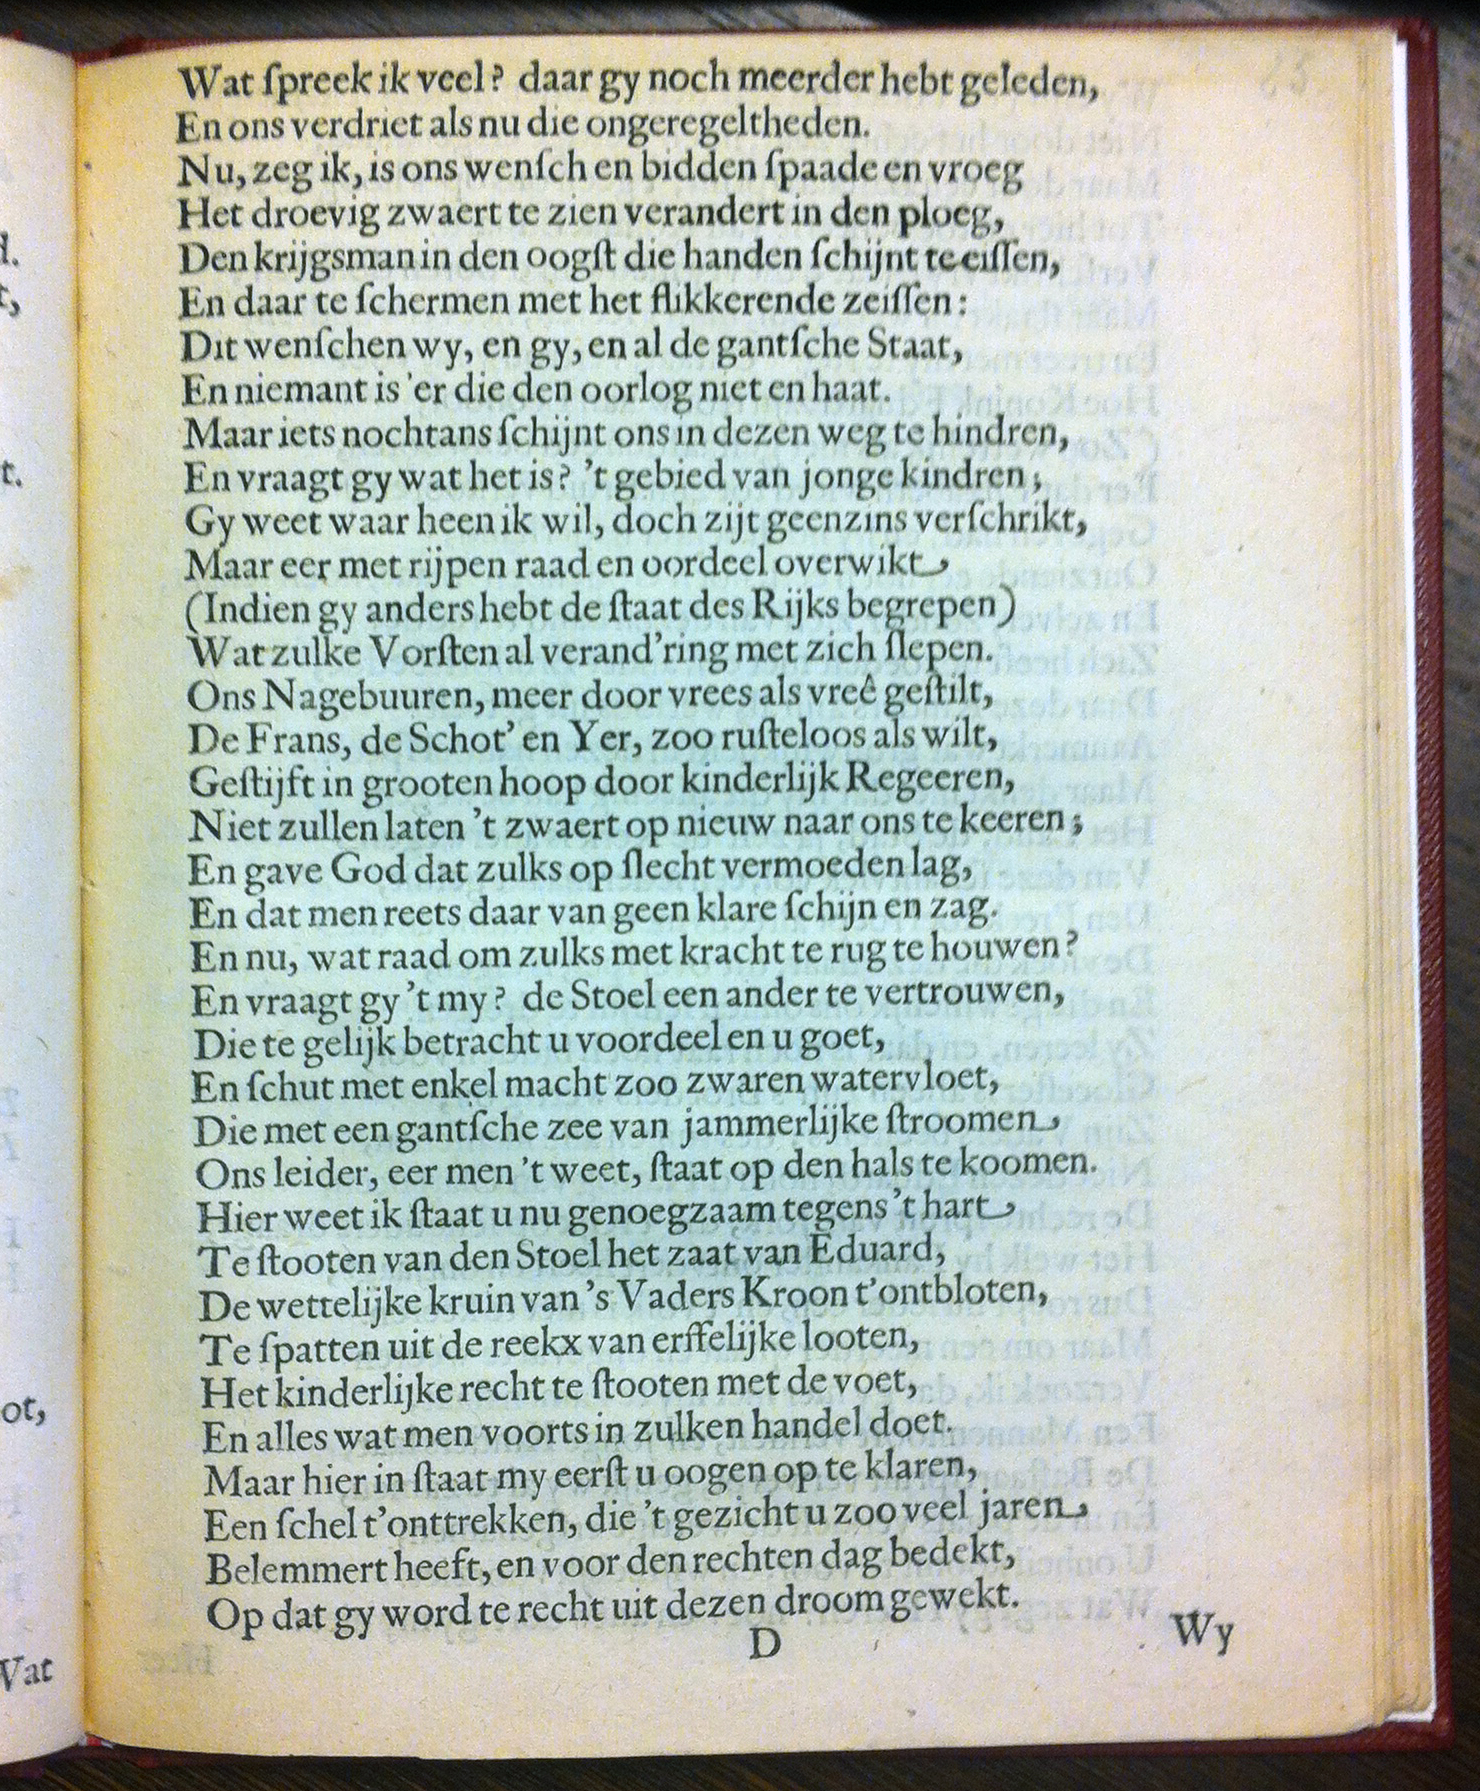 Wat ſpreek ik veel? daar gy noch meerder hebt geleden,
En ons verdriet als nu die ongeregeltheden.
Nu, zeg ik, is ons wenſch en bidden ſpaade en vroeg
Het droevig zwaert te zien verandert in den ploeg,
Den krijgsman in den oogſt die handen ſchijnt te eiſſen,
En daar te ſchermen met het flikkerende zeiſſen:
Dit wenſchen wy, en gy, en al de gantſche Staat,
En niemant is 'er die den oorlog niet en haat.
Maar iets nochtans ſchijnt ons in dezen weg te hindren,
En vraagt gy wat het is? 't gebied van jonge kindren;
Gy weet waar heen ik wil, doch zijt geenzins verſchrikt,
Maar eer met rijpen raad en oordeel overwikt
(Indien gy anders hebt de ſtaat des Rijks begrepen)
Wat zulke Vorſten al verand'ring met zich ſlepen.
Ons Nagebuuren, meer door vrees als vreê geſtilt,
De Frans, de Schot' en Yer, zoo ruſteloos als wilt,
Geſtijft in grooten hoop door kinderlijk Regeeren,
Niet zullen laten 't zwaert op nieuw naar ons te keeren;
En gave God dat zulks op ſlecht vermoeden lag,
En dat men reets daar van geen klare ſchijn en zag.
En nu, wat raad om zulks met kracht te rug te houwen?
En vraagt gy 't my? de Stoel een ander te vertrouwen,
Die te gelijk betracht u voordeel en u goet,
En ſchut met enkel macht zoo zwaren watervloet,
Die met een gantſche zee van jammerlijke ſtroomen
Ons leider, eer men 't weet, ſtaat op den hals te koomen.
Hier weet ik ſtaat u nu genoegzaam tegens 't hart
Te ſtooten van den Stoel het zaat van Eduard,
De wettelijke kruin van 's Vaders Kroon t'ontbloten,
Te ſpatten uit de reekx van erffelijke looten,
Het kinderlijke recht te ſtooten met de voet,
En alles wat men voorts in zulken handel doet.
Maar hier in ſtaat my eerſt u oogen op te klaren,
Een ſchel t'onttrekken, die 't gezicht u zoo veel jaren
Belemmert heeft, en voor den rechten dag bedekt,
Op dat gy word te recht uit dezen droom gewekt.
D
Wy